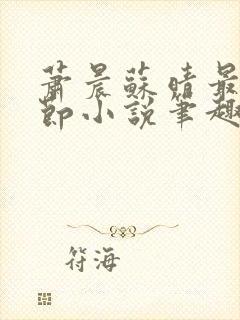 萧晨蘇晴最
節小說筆趣
符海